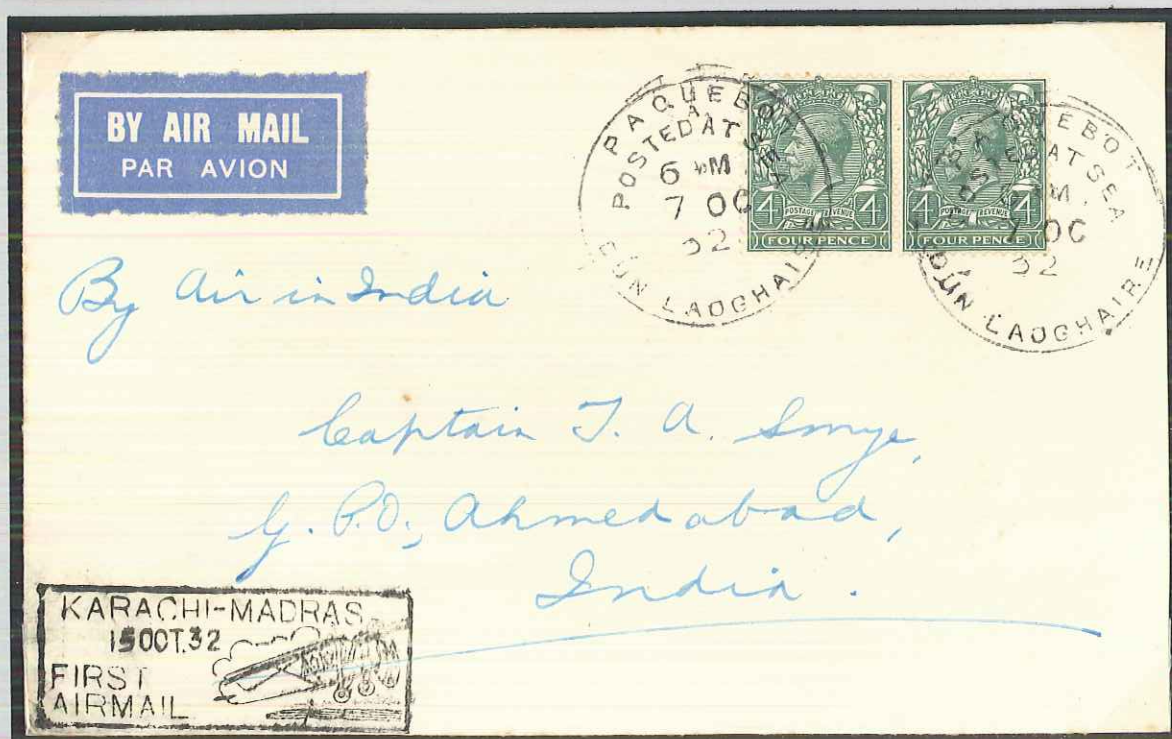 BY AIR MAIL
PAR AVION
PAQUEBOT
POSTED AT SEA
6 PM
7 OC
32
DUN LAOGHAIRE
4 POSTAGE REVENUE 4
FOUR PENCE
4 POSTAGE REVENUE 4
FOUR PENCE
PAQUEBOT
POSTED AT SEA
7 OC
32
DUN LAOGHAIRE
By Air in India
Captain T. A. Smye,
G.P.O., Ahmedabad,
India.
KARACHI-MADRAS
15 OCT.32
FIRST
AIRMAIL